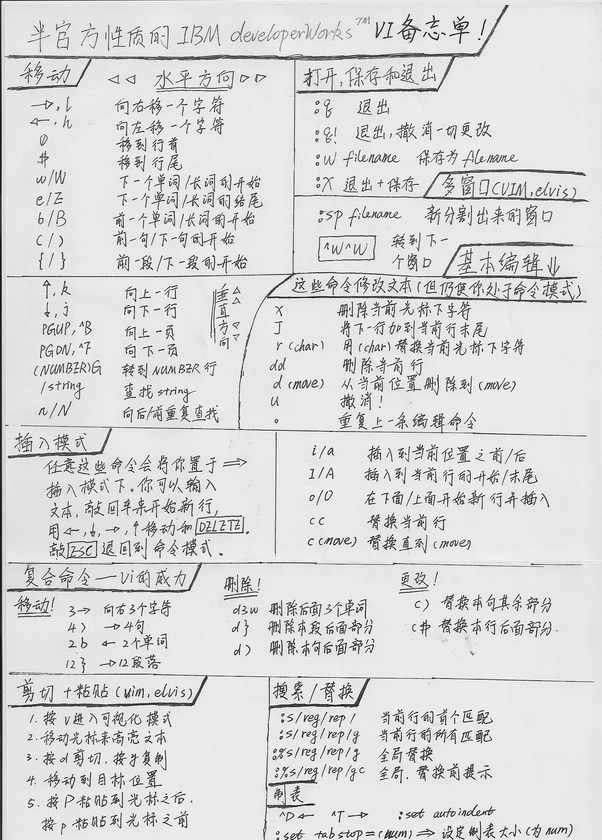 半官方性质的 IBM developerWorks™ VI备忘单!
移动 ◁◁ 水平方向 ▷▷
→, l 向右移一个字符
←, h 向左移一个字符
0 移到行首
$ 移到行尾
w/W 下一个单词/长词的开始
e/E 下一个单词/长词的结尾
b/B 前一个单词/长词的开始
(/) 前一句/下一句的开始
{/} 前一段/下一段的开始
↑, k 向上一行
↓, j 向下一行
PGUP, ^B 向上一页
PGDN, ^F 向下一页
(NUMBER)G 转到NUMBER行
/string 查找string
n/N 向后/前重复查找
△△ 垂直方向 ▽▽
打开,保存和退出
:q 退出
:q! 退出,撤消一切更改
:w filename 保存为filename
:x 退出+保存
多窗口(VIM,elvis)
:sp filename 新分割出来的窗口
^W^W 转到下一个窗口
基本编辑
这些命令修改文本(但仍使你处于命令模式)
x 删除当前光标下字符
J 将下一行加到当前行末尾
r (char) 用(char)替换当前光标下字符
dd 删除当前行
d (move) 从当前位置删除到(move)
u 撤消!
. 重复上一条编辑命令
插入模式
任意这些命令会将你置于 ⇒
插入模式下。你可以输入
文本,敲回车来开始新行,
用←,↓,→,↑移动和 DELETE.
敲 ESC 退回到命令模式.
i/a 插入到当前位置之前/后
I/A 插入到当前行的开始/末尾
o/O 在下面/上面开始新行并插入
cc 替换当前行
c(move) 替换直到(move)
复合命令——vi的威力
移动!
3→ 向右3个字符
4) →4句
2b ←2个单词
12} →12段落
删除!
d3w 删除后面3个单词
d} 删除本段后面部分
d) 删除本句后面部分
更改!
c) 替换本句其余部分
c$ 替换本行后面部分.
剪切+粘贴(vim,elvis)
1. 按v进入可视化模式
2. 移动光标来高亮文本
3. 按d剪切,按y复制
4. 移动到目标位置
5. 按P粘贴到光标之后,
按p粘贴到光标之前
搜索/替换
:s/reg/rep/ 当前行的首个匹配
:s/reg/rep/g 当前行的所有匹配
:%s/reg/rep/g 全局替换
:%s/reg/rep/gc 全局,替换前提示
制表
^D← ^T→ :set autoindent
:set tabstop=(num) ⇒ 设定制表大小(为num)